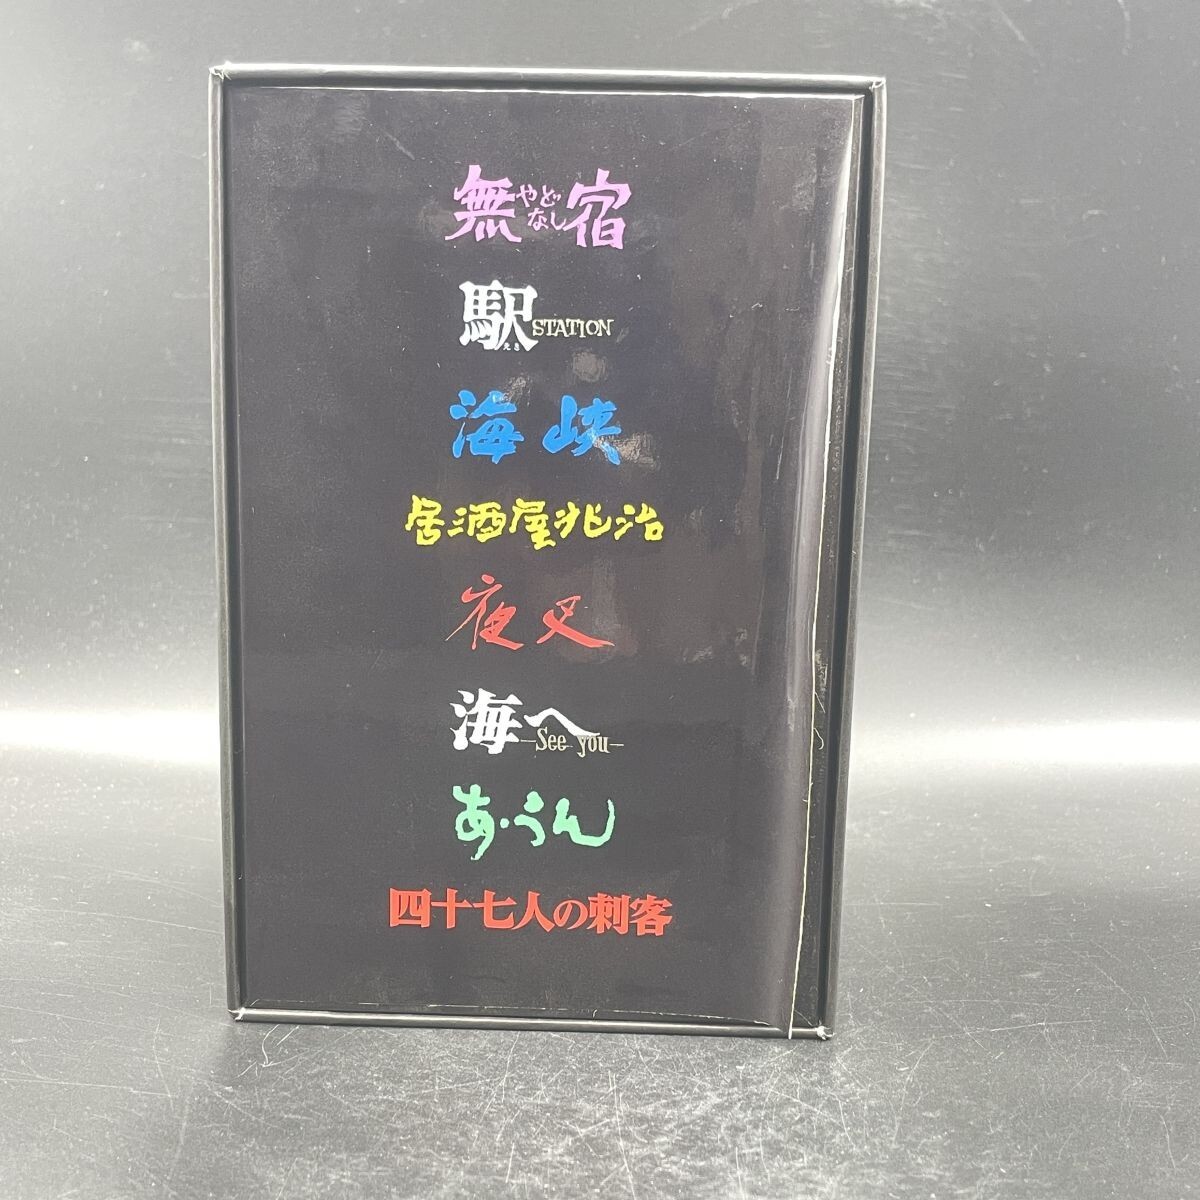 無宿
やど
なし
駅 STATION
えき
海峡
居酒屋兆治
夜叉
海へ
—See you—
あ・うん
四十七人の刺客